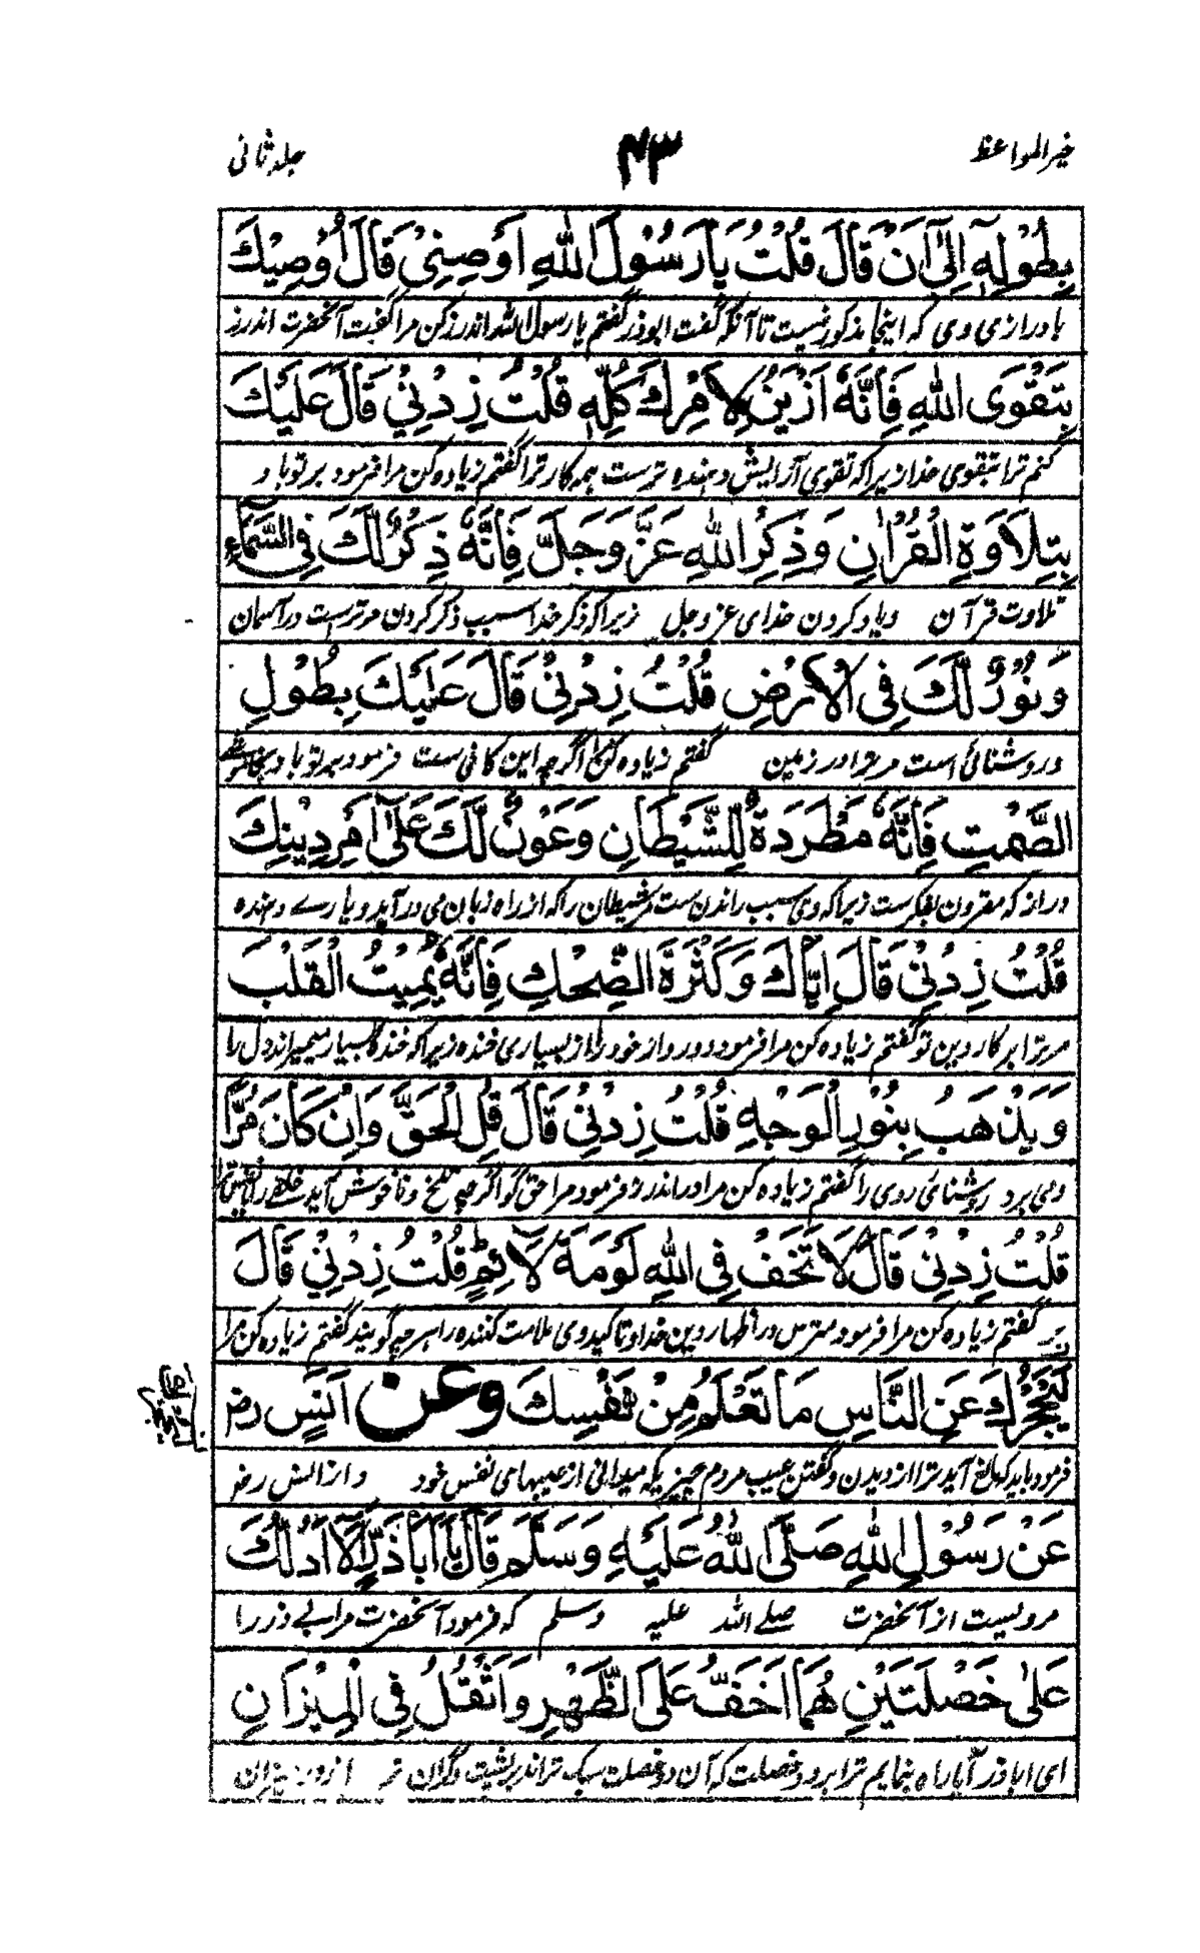 خیر المواعظ ۴۳ جلد ثانی
بِطُوْلِهٖۤ اِلٰۤى اَنْ قَالَ قُلْتُ يَا رَسُوْلَ اللّٰهِ اَوْصِنِيْ قَالَ اُوْصِيْكَ
با درازی وی که اینجا مذکور نیست تا آنکه گفت ابوذر گفتم یا رسول الله اندرز کن مرا گفت آنحضرت اندرز
بِتَقْوَى اللّٰهِ فَاِنَّهٗ اَزْيَنُ لِاَمْرِكَ كُلِّهٖ قُلْتُ زِدْنِيْ قَالَ عَلَيْكَ
کنم ترا بتقوی خدا زیرا که تقوی آرایش دهنده ترست همه کار ترا گفتم زیاده کن مرا فرمود بر تو باد
بِتِلَاوَةِ الْقُرْاٰنِ وَذِكْرِ اللّٰهِ عَزَّ وَجَلَّ فَاِنَّهٗ ذِكْرٌ لَّكَ فِي السَّمَآءِ
تلاوت قرآن ویاد کردن خدای عز وجل زیرا که ذکر خدا سبب ذکر کردن مر ترست در آسمان
وَنُوْرٌ لَّكَ فِي الْاَرْضِ قُلْتُ زِدْنِيْ قَالَ عَلَيْكَ بِطُوْلِ
و روشنائی است مر ترا در زمین گفتم زیاده کن اگرچه این کافی ست فرمود بر تو باد
الصَّمْتِ فَاِنَّهٗ مَطْرَدَةٌ لِّلشَّيْطَانِ وَعَوْنٌ لَّكَ عَلٰۤى اَمْرِ دِيْنِكَ
دراز که مقرون بفکرست زیرا که وی سبب راندن ست مر شیطان را که از راه زبان می در آید و یارے دهنده
قُلْتُ زِدْنِيْ قَالَ اِيَّاكَ وَكَثْرَةَ الضِّحْكِ فَاِنَّهٗ يُمِيْتُ الْقَلْبَ
مر ترا بر کار دین تو گفتم زیاده کن مرا فرمود دور دار خود را از بسیاری خنده زیرا که خنده بسیار میمیراند دل را
وَيَذْهَبُ بِنُوْرِ الْوَجْهِ قُلْتُ زِدْنِيْ قَالَ قُلِ الْحَقَّ وَاِنْ كَانَ مُرًّا
و می برد روشنائی روی را گفتم زیاده کن مرا در اندرز فرمود مرا حق گو اگرچه تلخ و ناخوش آید
قُلْتُ زِدْنِيْ قَالَ لَا تَخَفْ فِي اللّٰهِ لَوْمَةَ لَآئِمٍ قُلْتُ زِدْنِيْ قَالَ
گفتم زیاده کن مرا فرمود مترس در اظهار دین خدا و تاکید وی ملامت کننده را هرچه گویند گفتم زیاده کن مرا
لِيَحْجُزْكَ عَنِ النَّاسِ مَا تَعْلَمُ مِنْ نَفْسِكَ وعن اَنَسٍ رض
فرمود باید که مانع آید ترا از دیدن و گفتن عیب مردم چیزیکه میدانی از عیبهای نفس خود و از انس رض
عَنْ رَسُوْلِ اللّٰهِ صَلَّى اللّٰهُ عَلَيْهِ وَسَلَّمَ قَالَ يَا اَبَا ذَرٍّ اَلَا اَدُلُّكَ
مرویست از آنحضرت صلے الله علیه وسلم که فرمود آنحضرت مر ابی ذر را
عَلٰى خَصْلَتَيْنِ هُمَا اَخَفُّ عَلَى الظَّهْرِ وَاَثْقَلُ فِي الْمِيْزَانِ
ای ابا ذر آیا راه بنمایم ترا بر دو خصلت که آن دو خصلت سبک تر اند بر پشت و گران تر میزان